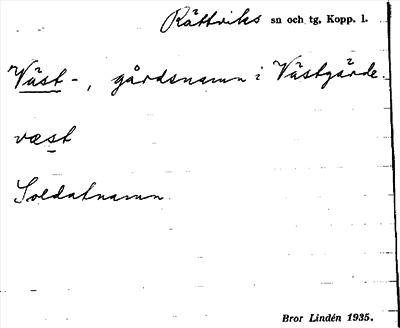 Rättviks sn och tg, Kopp. l.
Väst-, gårdsnamn i Västgärde.
væst
Soldatnamn
Bror Lindén 1935.